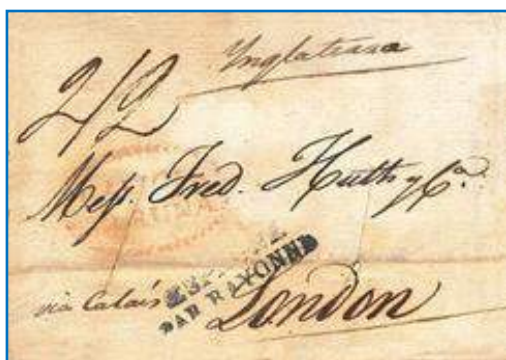 Inglaterra
2/2
Mess. Fred. Huth y Ca.
via Calais
ESPAGNE
PAR BAYONNE
London